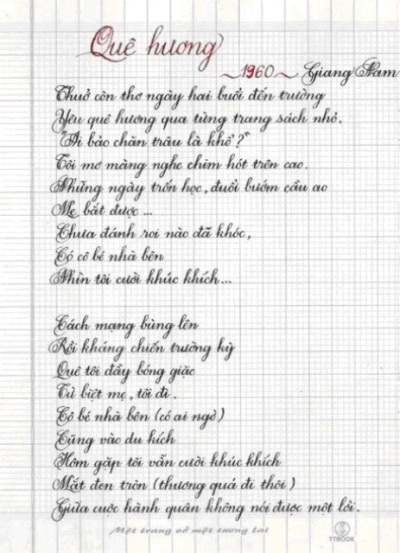 Quê hương
~1960~ Giang Nam
Thuở còn thơ ngày hai buổi đến trường
Yêu quê hương qua từng trang sách nhỏ.
"Ai bảo chăn trâu là khổ?"
Tôi mơ màng nghe chim hót trên cao.
Những ngày trốn học, đuổi bướm cầu ao
Mẹ bắt được ...
Chưa đánh roi nào đã khóc,
Có cô bé nhà bên
Nhìn tôi cười khúc khích...
Cách mạng bùng lên
Rồi kháng chiến trường kỳ
Quê tôi đầy bóng giặc
Từ biệt mẹ, tôi đi.
Cô bé nhà bên (có ai ngờ)
Cũng vào du kích
Hôm gặp tôi vẫn cười khúc khích
Mắt đen tròn (thương quá đi thôi)
Giữa cuộc hành quân không nói được một lời.
Một trang vở một tương lai
TTBOOK